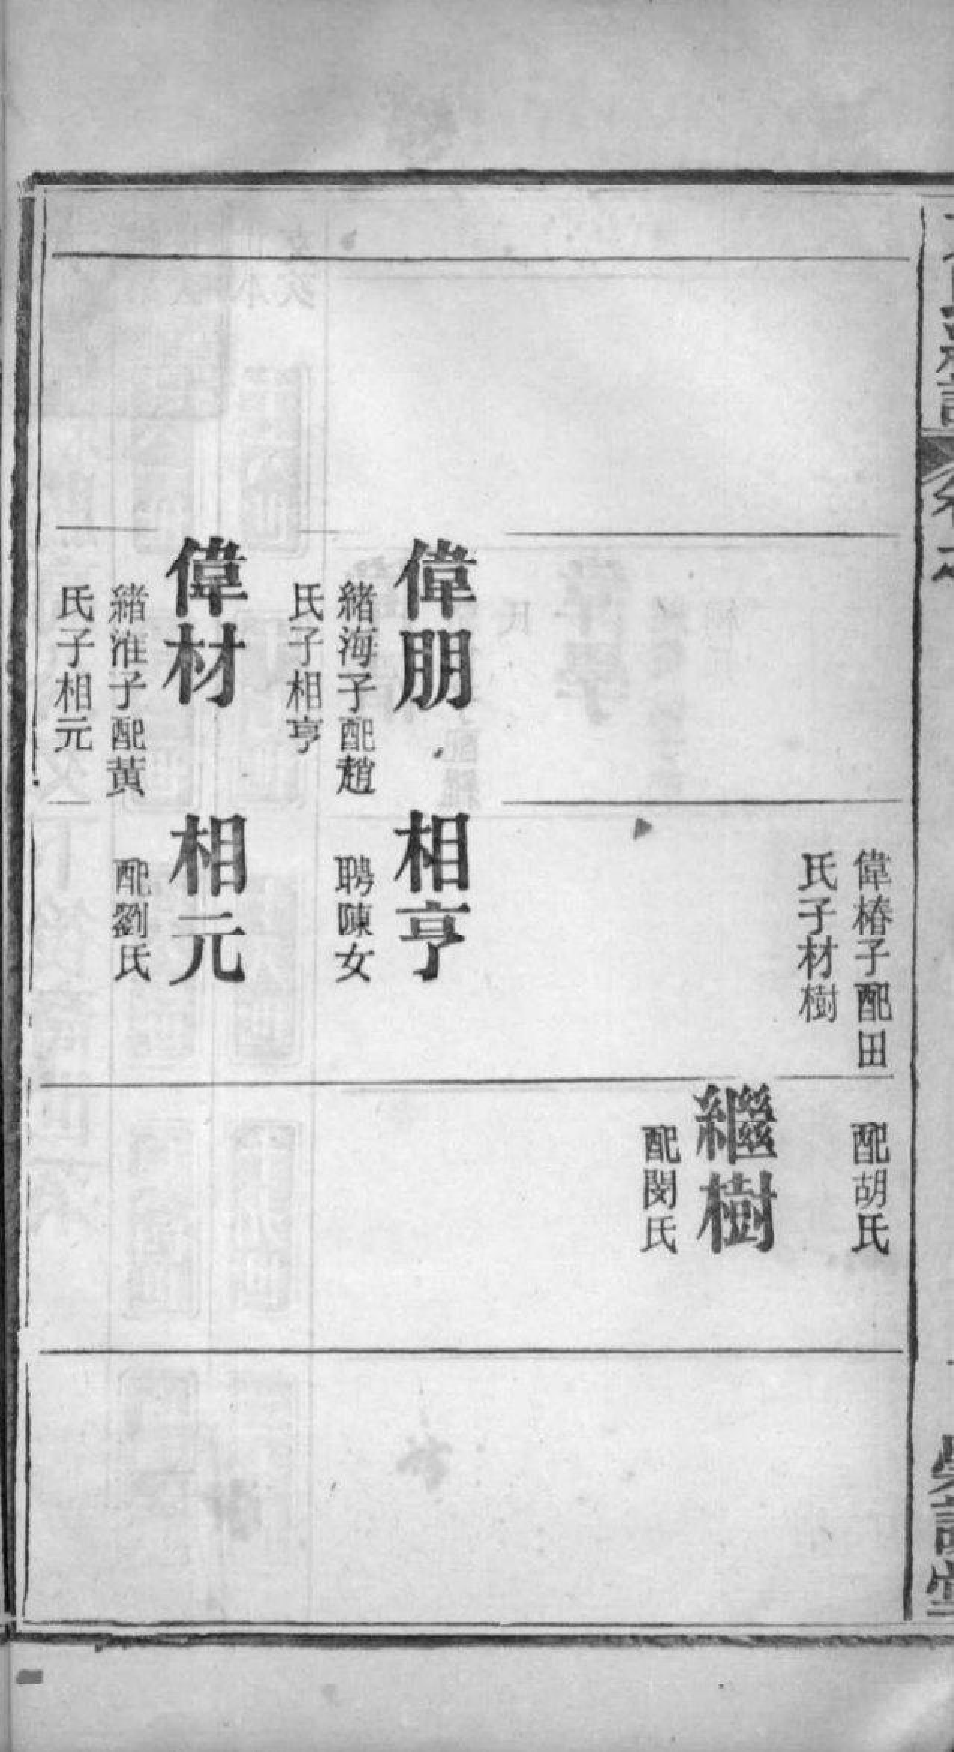 偉椿子配田
氏子材樹
配胡氏
繼樹
配閔氏
偉朋
緒海子配趙
氏子相亨
相亨
聘陳女
偉材
緒淮子配黃
氏子相元
相元
配劉氏